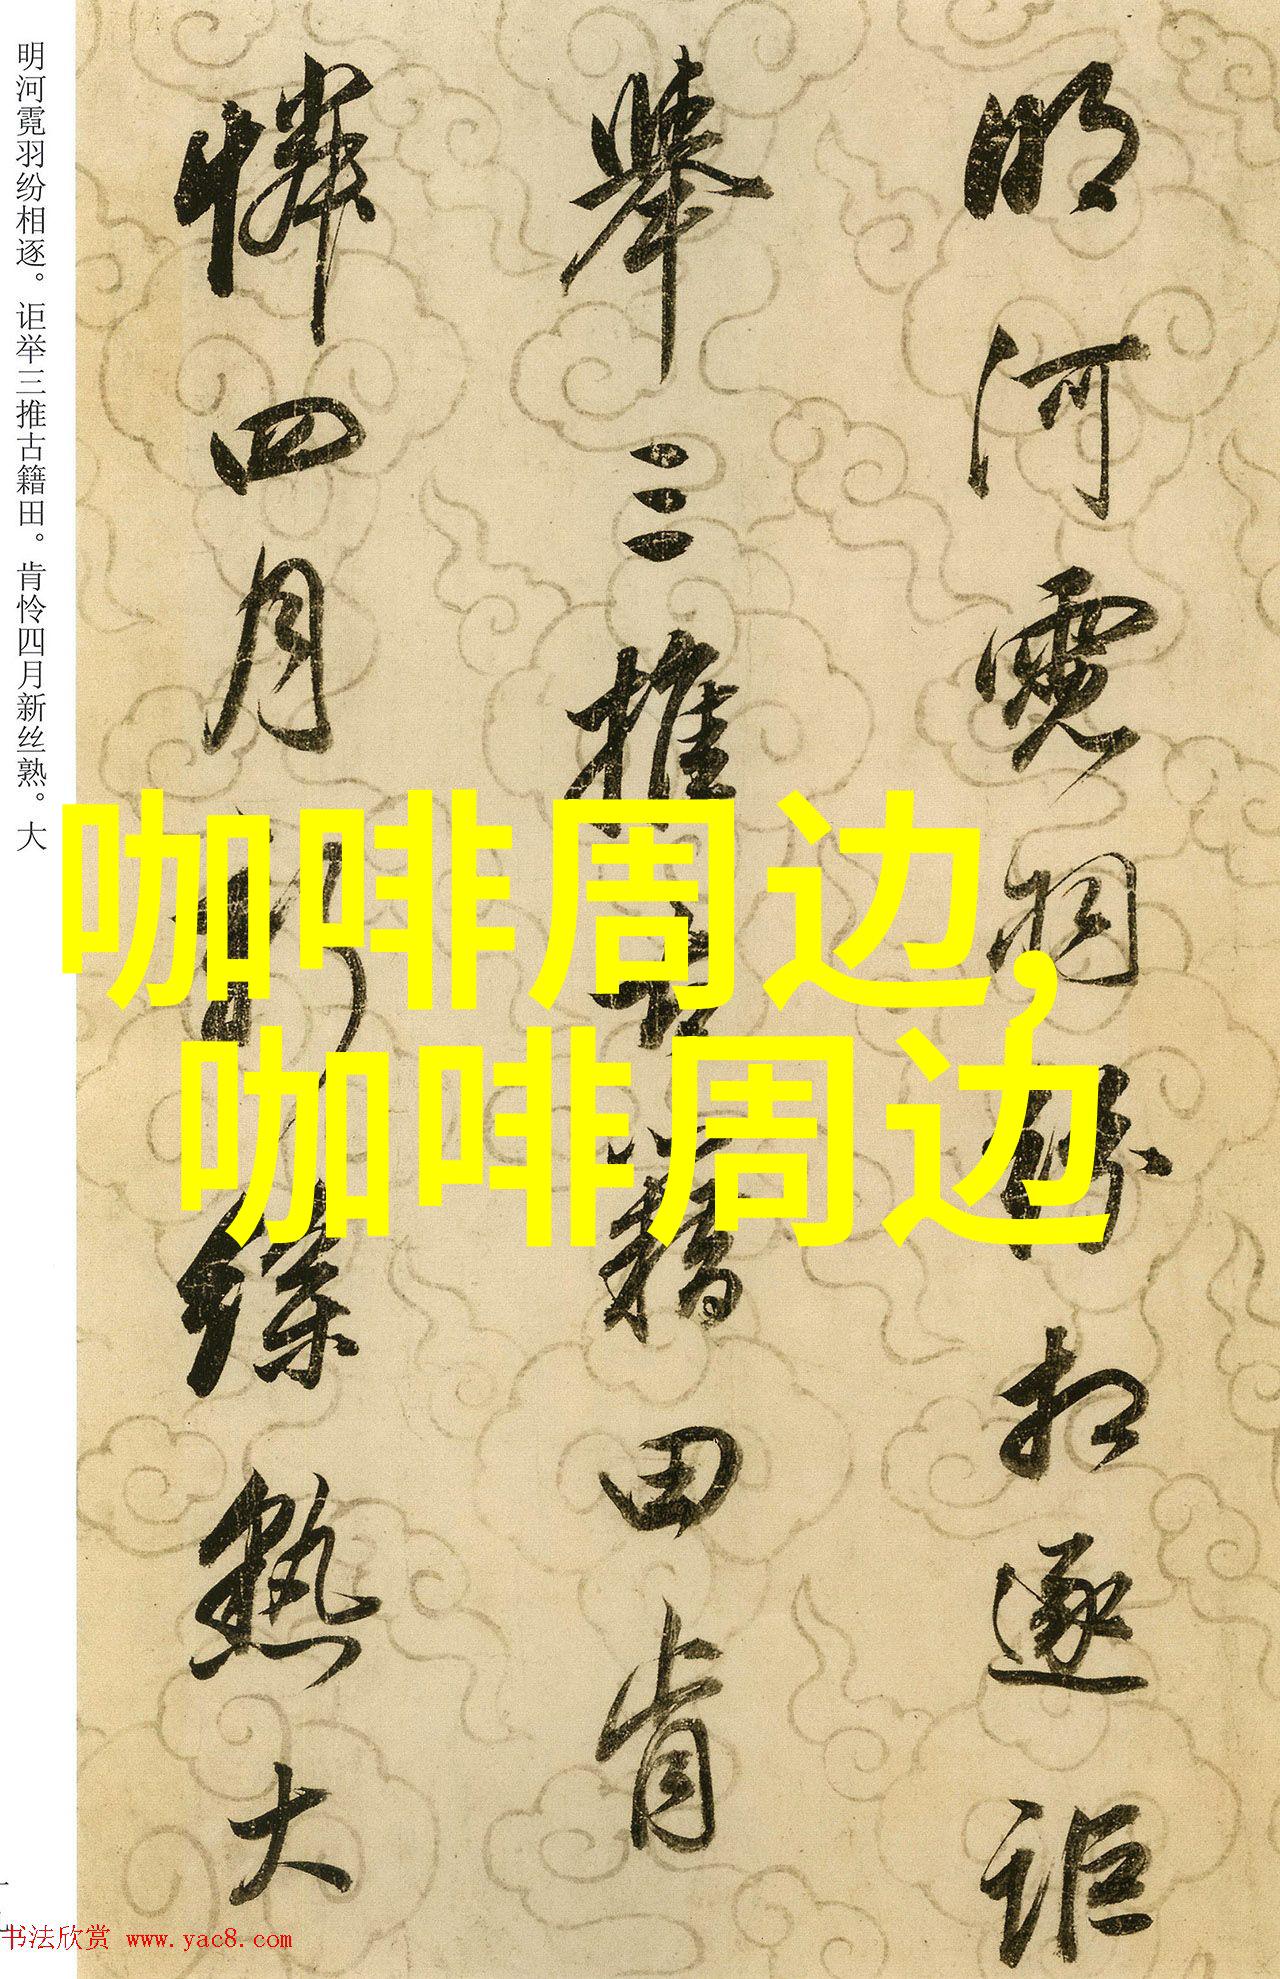 明河霓羽纷相逐。讵举三推古籍田。肯怜四月新丝熟。大
明河霓羽纷相逐讵
舉三推古籍田肯
憐四月新絲熟大
咖啡周边,
咖啡周边
书法欣赏 www.yac8.com